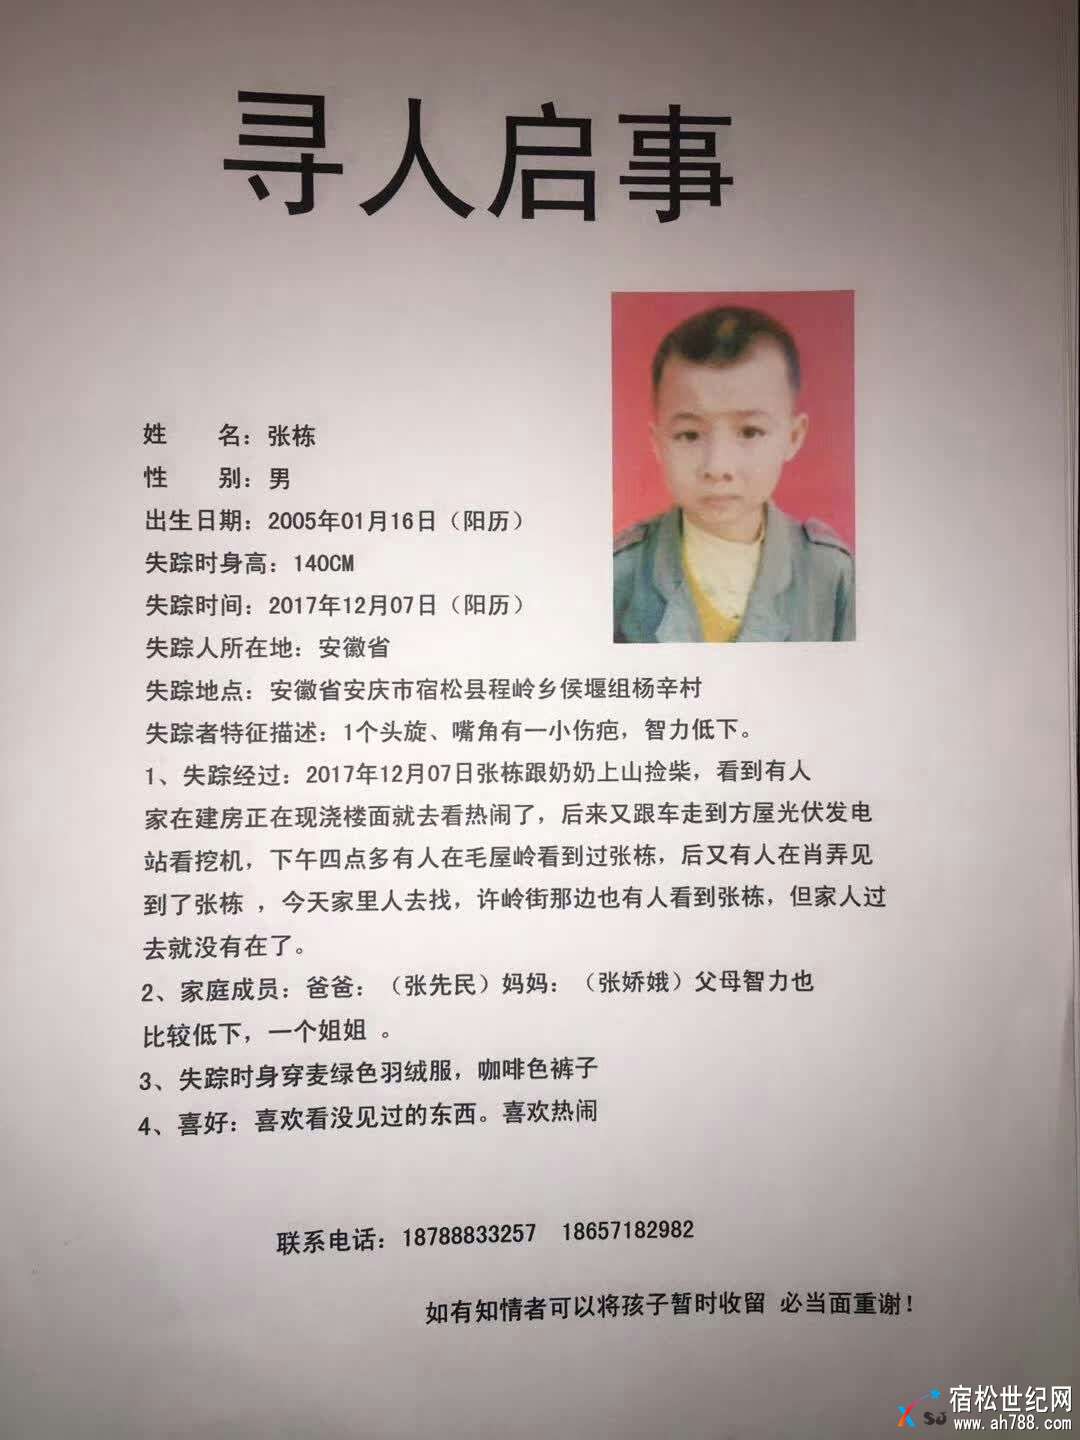 寻人启事
姓　　名：张栋
性　　别：男
出生日期：2005年01月16日（阳历）
失踪时身高：140CM
失踪时间：2017年12月07日（阳历）
失踪人所在地：安徽省
失踪地点：安徽省安庆市宿松县程岭乡侯堰组杨辛村
失踪者特征描述：1个头旋、嘴角有一小伤疤，智力低下。
1、失踪经过：2017年12月07日张栋跟奶奶上山捡柴，看到有人
家在建房正在现浇楼面就去看热闹了，后来又跟车走到方屋光伏发电
站看挖机，下午四点多有人在毛屋岭看到过张栋，后又有人在肖弄见
到了张栋 ，今天家里人去找，许岭街那边也有人看到张栋，但家人过
去就没有在了。
2、家庭成员：爸爸：（张先民）妈妈：（张娇娥）父母智力也
比较低下，一个姐姐 。
3、失踪时身穿麦绿色羽绒服，咖啡色裤子
4、喜好：喜欢看没见过的东西。喜欢热闹
联系电话：18788833257 18657182982
如有知情者可以将孩子暂时收留 必当面重谢！
XSJ 宿松世纪网
www.ah788.com